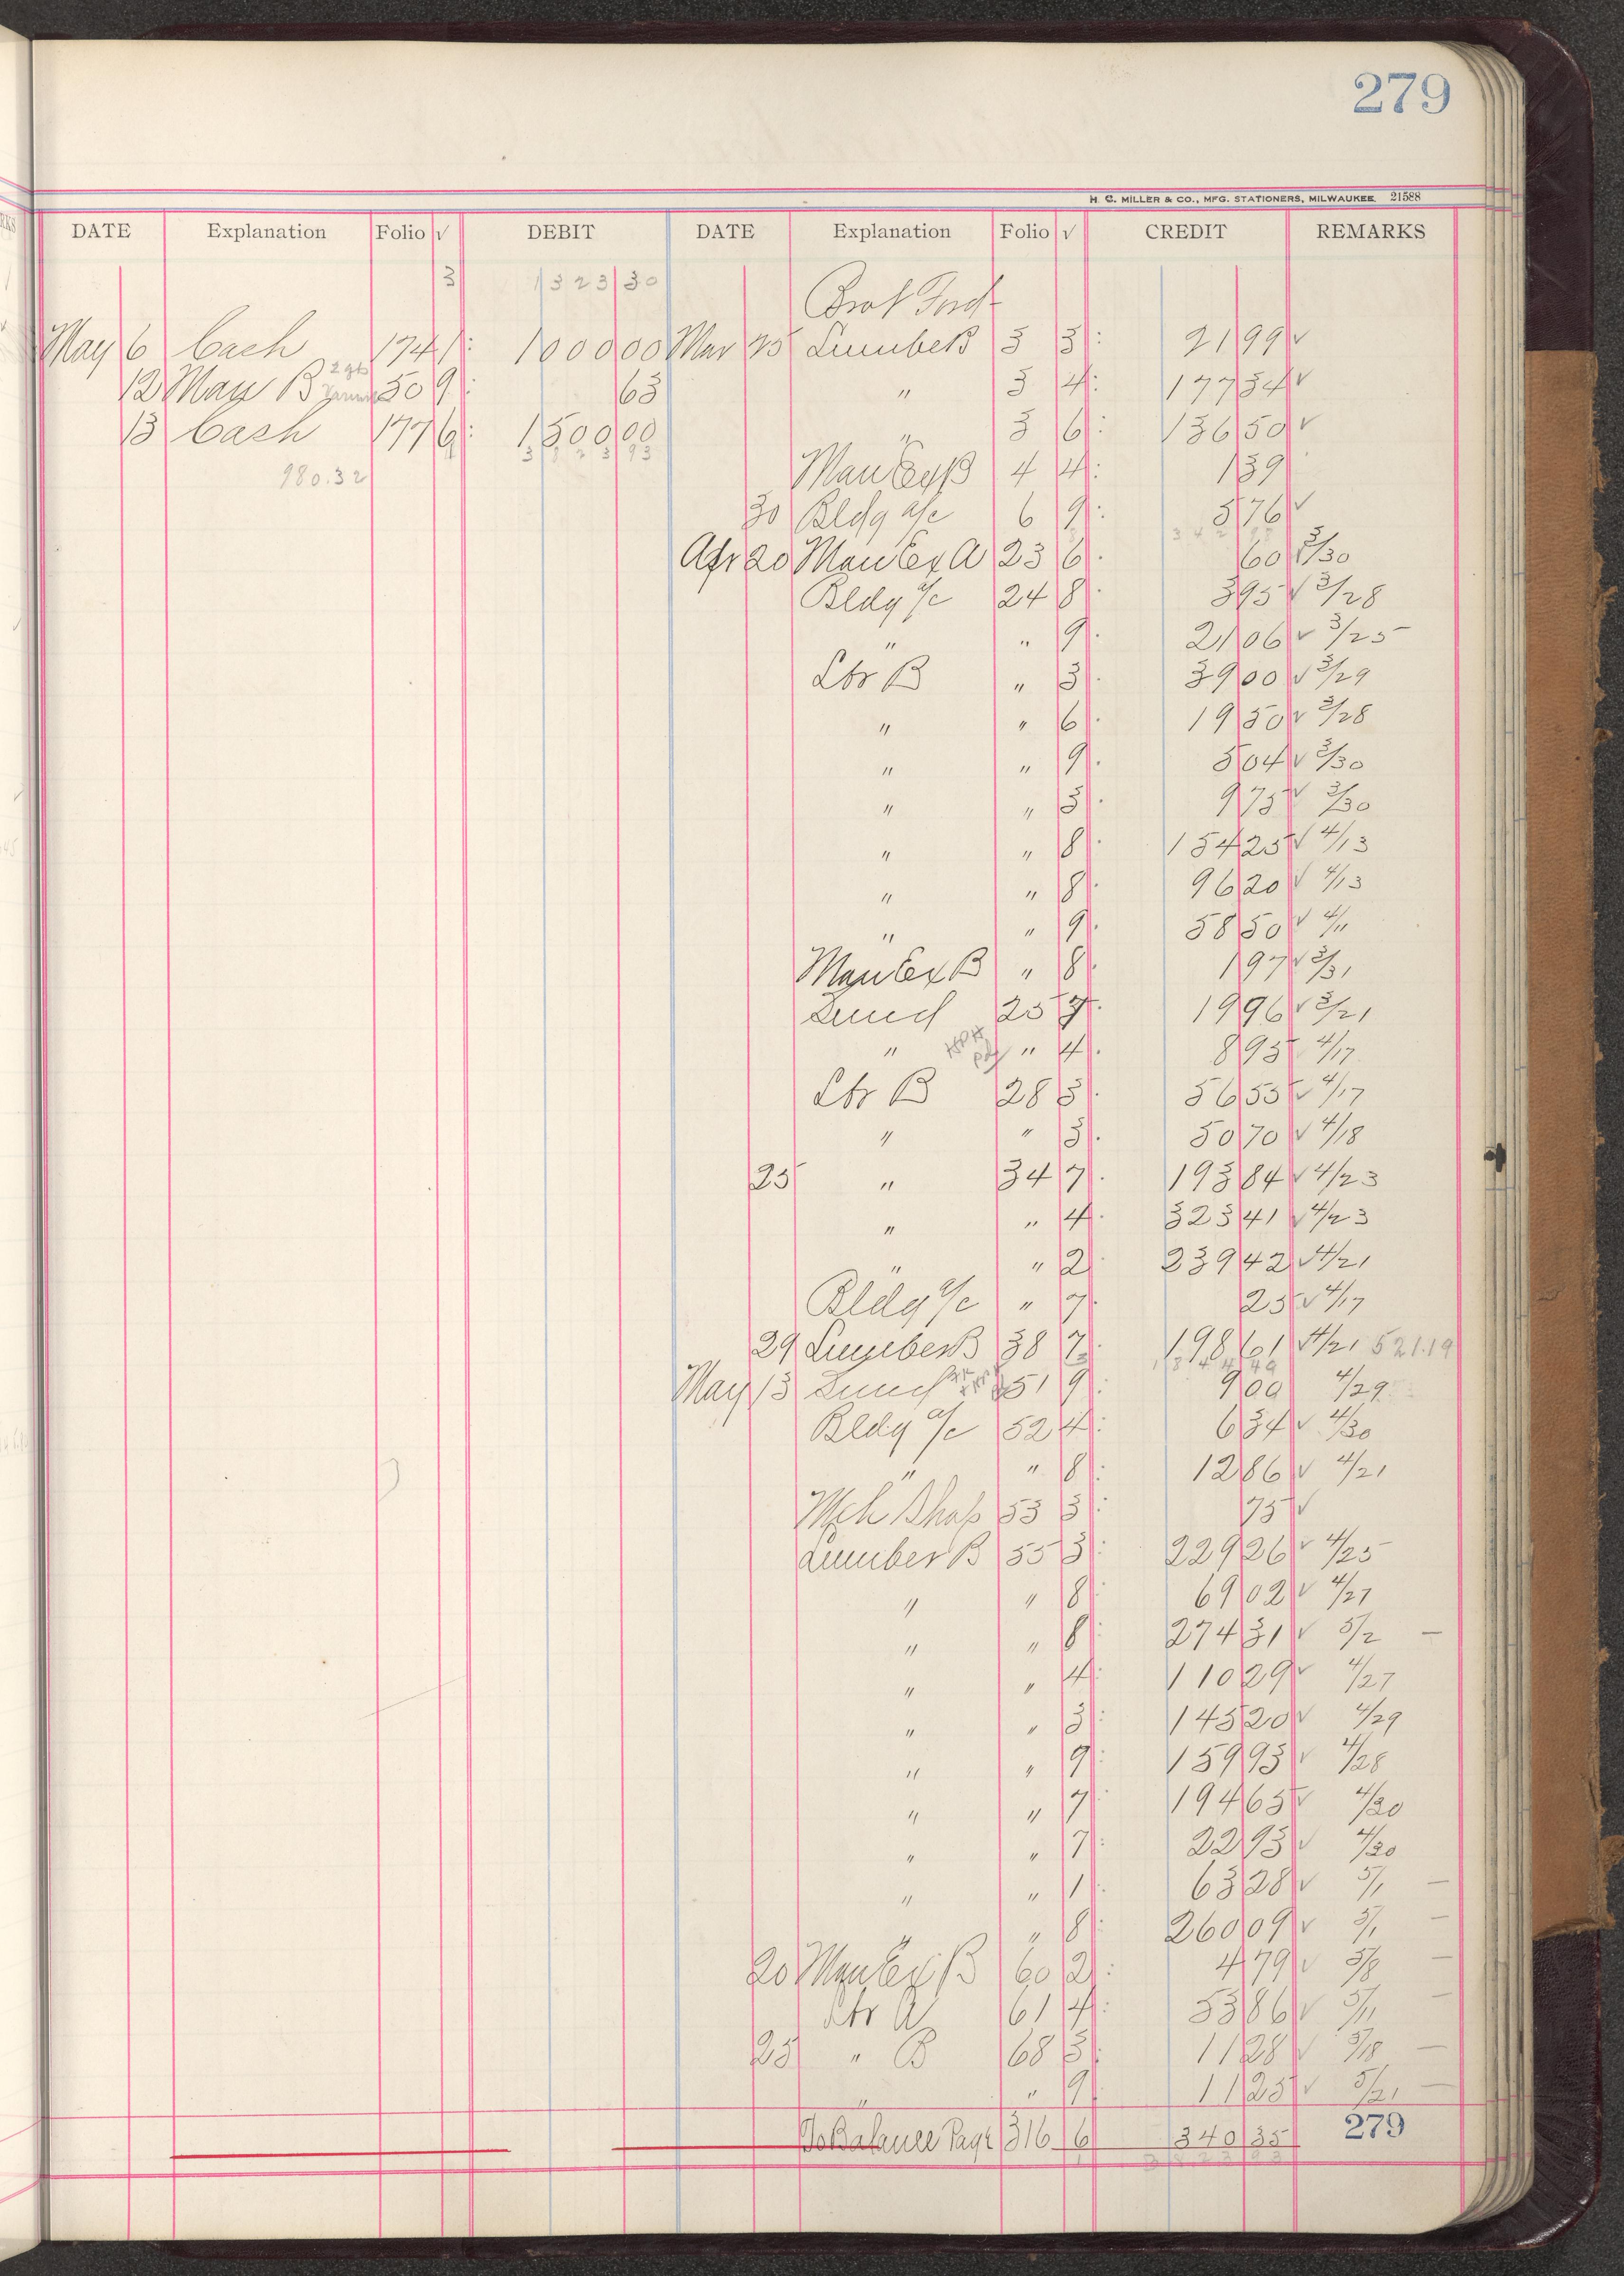 279
H. C. MILLER & CO., MFG. STATIONERS, MILWAUKEE 21588
DATE Explanation Folio √ DEBIT DATE Explanation Folio √ CREDIT REMARKS
3 1323 30
Brot Ford
May 6 Cash 174 1 1000 00 Mar 25 Lumber B 3 3 21 99 √
12 Man B 50 9 63 " 3 4 177 34 √
13 Cash 177 6 1500 00 " 3 6 136 50 √
3823 93
980.32 Man Ex B 4 4 1 39
30 Bldg a/c 6 9 5 76 √
Apr 20 Man Ex A 23 6 60 √ 3/30
Bldg a/c 24 8 3 95 √ 3/28
" " 9 21 06 √ 3/25
Lbr B " 3 39 00 √ 3/29
" " 6 19 50 √ 3/28
" " 9 5 04 √ 3/30
" " 3 9 75 √ 3/30
" " 8 154 25 √ 4/13
" " 8 96 20 √ 4/13
" " 9 58 50 √ 4/11
Man Ex B " 8 1 97 √ 3/31
Lund 25 7 19 96 √ 3/21
" " 4 8 95 4/17
Lbr B 28 3 56 55 √ 4/17
" " 3 50 70 √ 4/18
25 " 34 7 193 84 √ 4/23
" " 4 323 41 √ 4/23
" " 2 239 42 √ 4/21
Bldg a/c " 7 25 √ 4/17
29 Lumber B 38 7 198 61 √ 4/21 521.19
1844 49
May 13 Lund 51 9 9 00 4/29
Bldg a/c 52 4 6 34 √ 4/30
" " 8 12 86 √ 4/21
Mch Shop 53 3 75 √
Lumber B 55 3 229 26 √ 4/25
" " 8 69 02 √ 4/27
" " 8 274 31 √ 5/2 —
" " 4 110 29 √ 4/27
" " 3 145 20 √ 4/29
" " 9 159 93 √ 4/28
" " 7 194 65 √ 4/30
" " 7 22 93 √ 4/30
" " 1 63 28 √ 5/1 —
" " 8 260 09 √ 5/1 —
20 Man Ex B 60 2 4 79 √ 5/8 —
Lbr A 61 4 53 86 √ 5/11 —
25 " B 68 3 11 28 √ 5/18 —
" " 9 11 25 √ 5/21 —
To Balance Page 316 6 340 35 279
3823 93